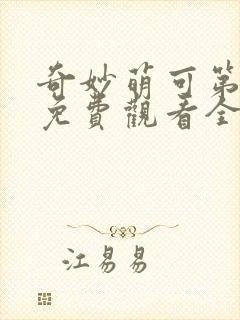 奇妙萌可第
免費觀看全
江易易